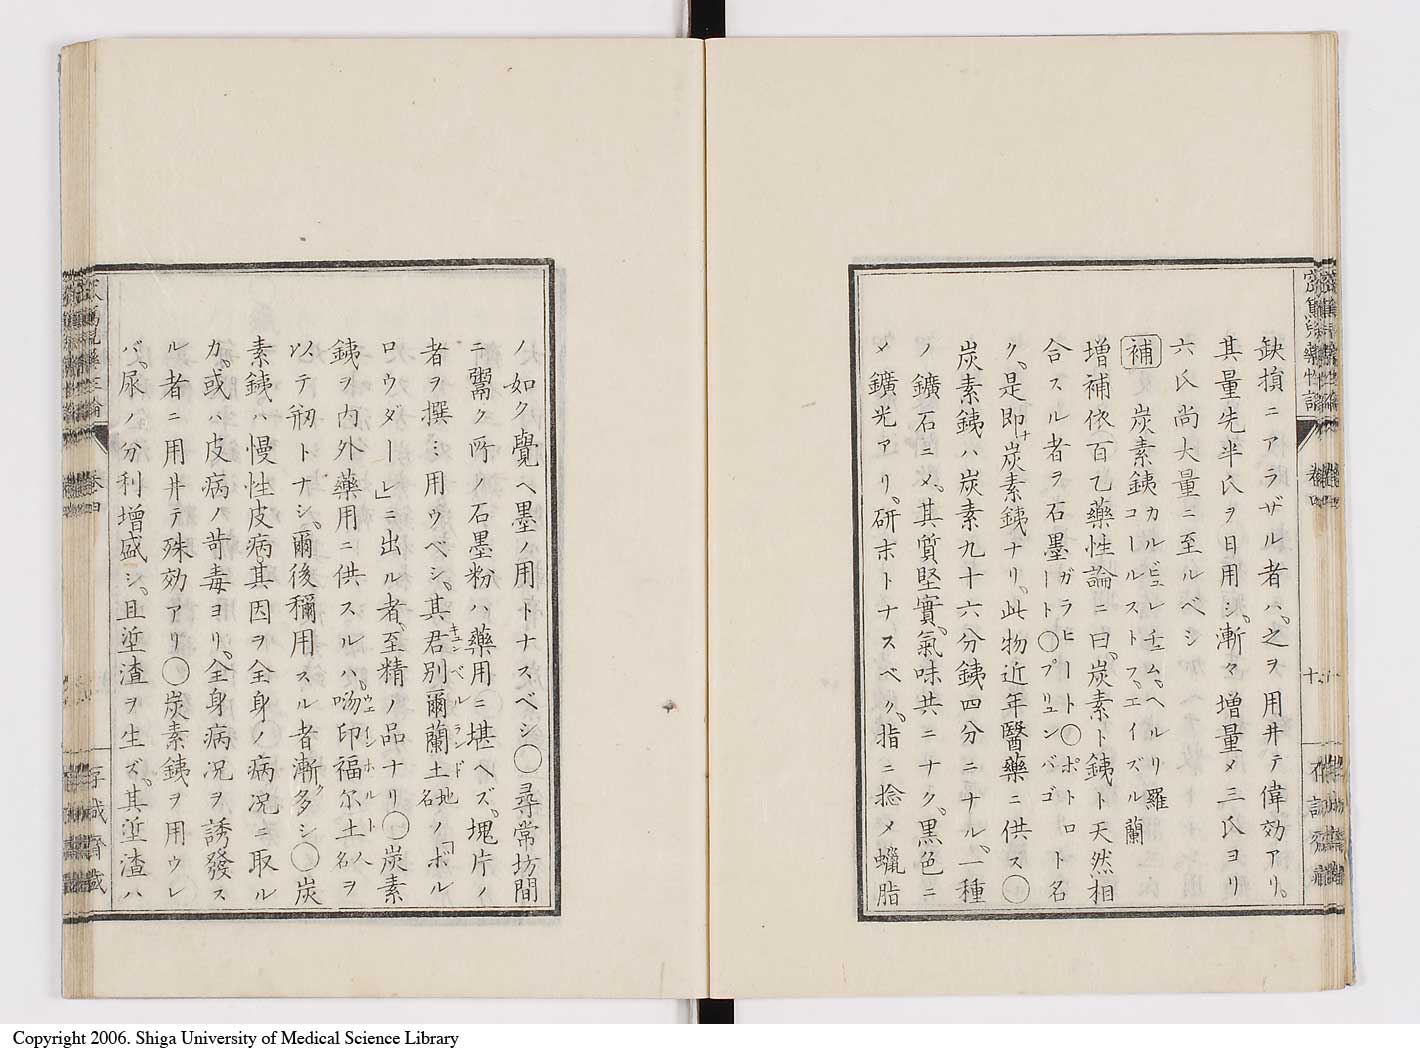 缺損ニアラザル者ハ、之ヲ用井テ偉効アリ。
其量先半氏ヲ日用シ、漸々増量メ三氏ヨリ
六氏尚大量ニ至ルベシ
補 炭素銕カルビュレチュム、ヘルリ羅 コールストフ、エイズル蘭
増補依百乙藥性論ニ曰、炭素ト銕ト天然相
合スル者ヲ石墨ガラヒート〇ポトロート〇プリュンバゴト名
ク、是即ナ炭素銕ナリ、此物近年醫藥ニ供ス〇
炭素銕ハ炭素九十六分銕四分ニナル、一種
ノ鑛石ニメ、其質堅實、氣味共ニナク、黒色ニ
メ鑛光アリ、研末トナスベク、指ニ捻メ蠟脂
ノ如ク覺ヘ墨ノ用トナスベシ〇尋常坊間
ニ鬻ク所ノ石墨粉ハ藥用ニ堪ヘズ、塊片ノ
者ヲ撰ミ用ウベシ、其君別爾蘭土キュンベルランド地名ノ「ボル
ロウダーレ」ニ出ル者、至精ノ品ナリ〇炭素
銕ヲ内外藥用ニ供スルハ、喎印福尓土ウエインホルト人名ヲ
以テ剏トナシ、爾後稱用スル者漸ク多シ〇炭
素銕ハ慢性皮病、其因ヲ全身ノ病况ニ取ル
カ、或ハ皮病ノ苛毒ヨリ、全身病况ヲ誘發ス
ル者ニ用井テ殊効アリ〇炭素銕ヲ用ウレ
バ、尿ノ分利増盛シ、且垽渣ヲ生ズ、其垽渣ハ
卷四
Copyright 2006. Shiga University of Medical Science Library